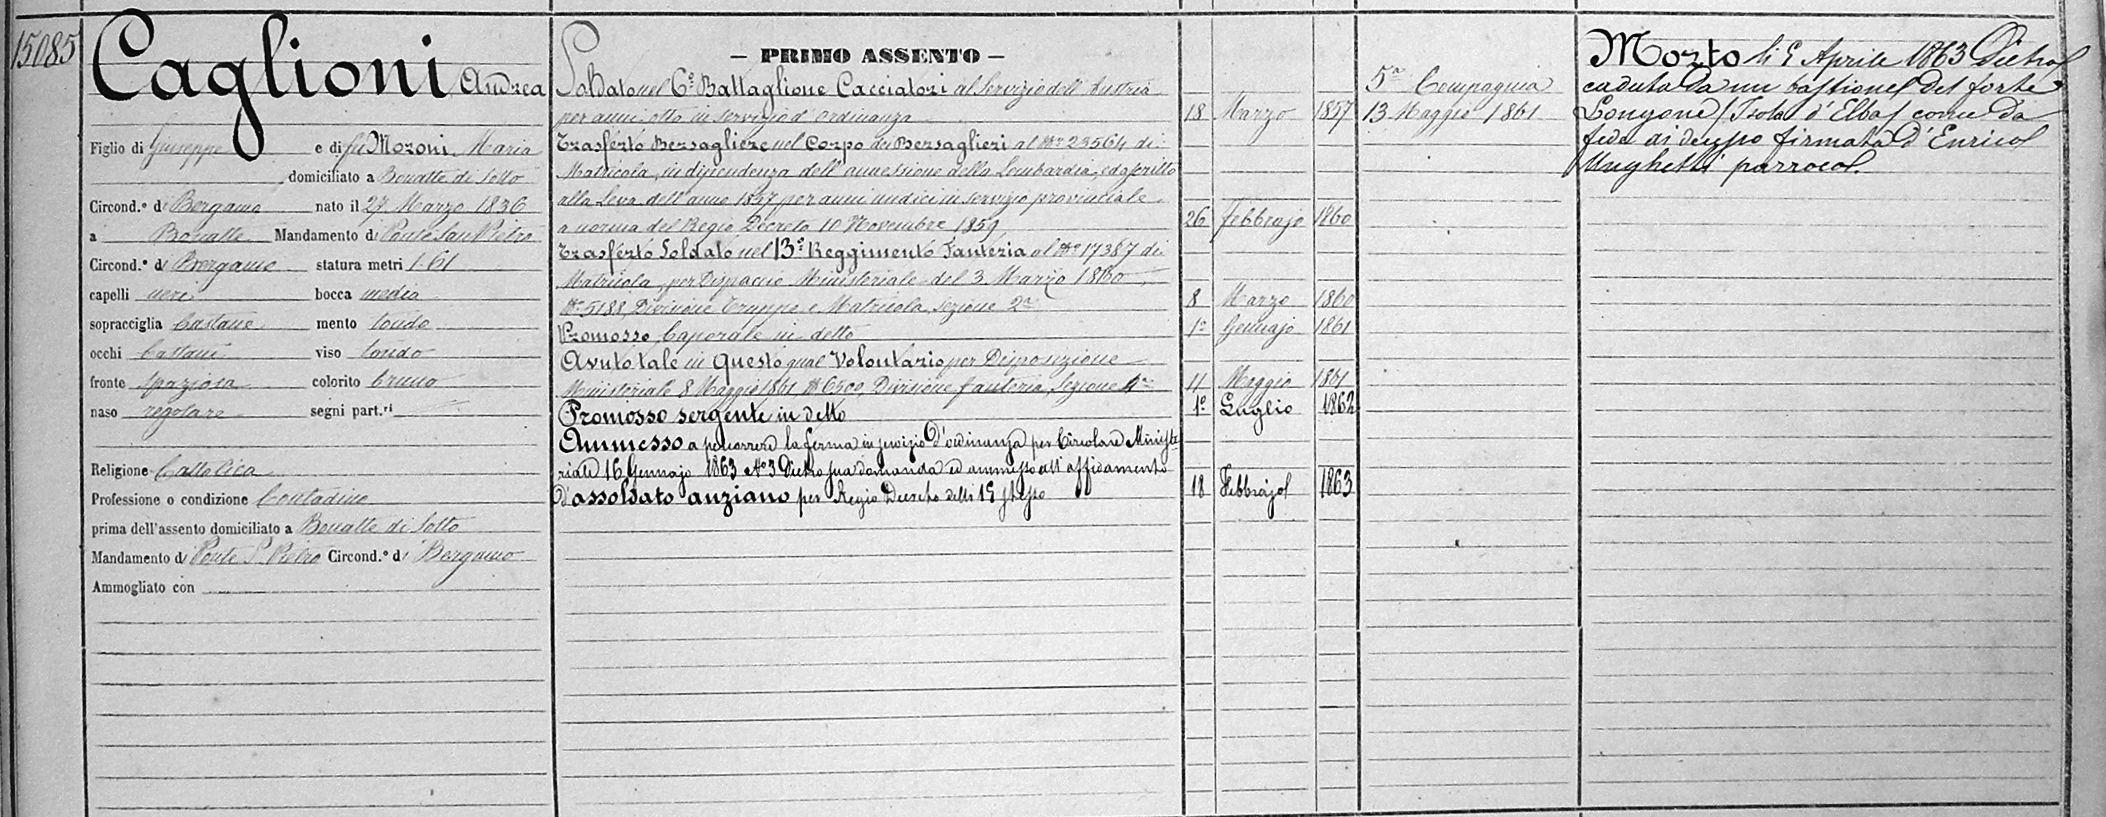 15085
Caglioni Andrea
Figlio di Giuseppe e di fu Mozoni Maria
domiciliato a Bonatte di Sotto
Circond.º di Bergamo nato il 27 Marzo 1836
a Bonatte Mandamento di Ponte San Pietro
Circond.º di Bergamo statura metri 1.61
capelli neri bocca media
sopracciglia Castane mento tondo
occhi Castani viso tondo
fronte spaziosa colorito bruno
naso regolare segni part.ri
Religione Cattolica
Professione o condizione Contadino
prima dell'assento domiciliato a Bonatte di Sotto
Mandamento di Ponte S. Pietro Circond.º di Bergamo
Ammogliato con
– PRIMO ASSENTO –
Soldato nel 6.º Battaglione Cacciatori al Servizio dell'Austria
per anni otto in servizio d'Ordinanza 18 Marzo 1857
Trasferto Bersagliere nel Corpo dei Bersaglieri al Nº 23564 di
Matricola, in dipendenza dell'annessione della Lombardia, ed ascritto
alla Leva dell'anno 1857 per anni undici in servizio provinciale
a norma del Regio Decreto 10 Novembre 1859 26 Febbrajo 1860
Trasferto Soldato nel 13º Reggimento Fanteria al Nº 17387 di
Matricola, per Dispaccio Ministeriale del 3 Marzo 1860
Nº 5188, Divisione Truppe e Matricola, Sezione 2ª 8 Marzo 1860
Promosso Caporale in detto 1º Gennajo 1861
Avuto tale in Questo qual Volontario per Disposizione
Ministeriale 8 Maggio 1861 Nº 6500, Divisione fanteria, Sezione 4ª 11 Maggio 1861
Promosso sergente in detto 1º Luglio 1862
Ammesso a percorrere la ferma in servizio d'ordinanza per Circolare Ministe
riale 16 Gennajo 1863 Nº 3 Dietro sua domanda ed ammesso all'affidamento
d'assoldato anziano per Regio Decreto delli 15 stesso 18 Febbrajo 1863
5ª Compagnia
13 Maggio 1861
Morto li 5 Aprile 1863 Dietro
caduta da un bastione del forte
Longone (Isola d'Elba) come da
fede di decesso firmata d'Enrico
Unghetti parroco.